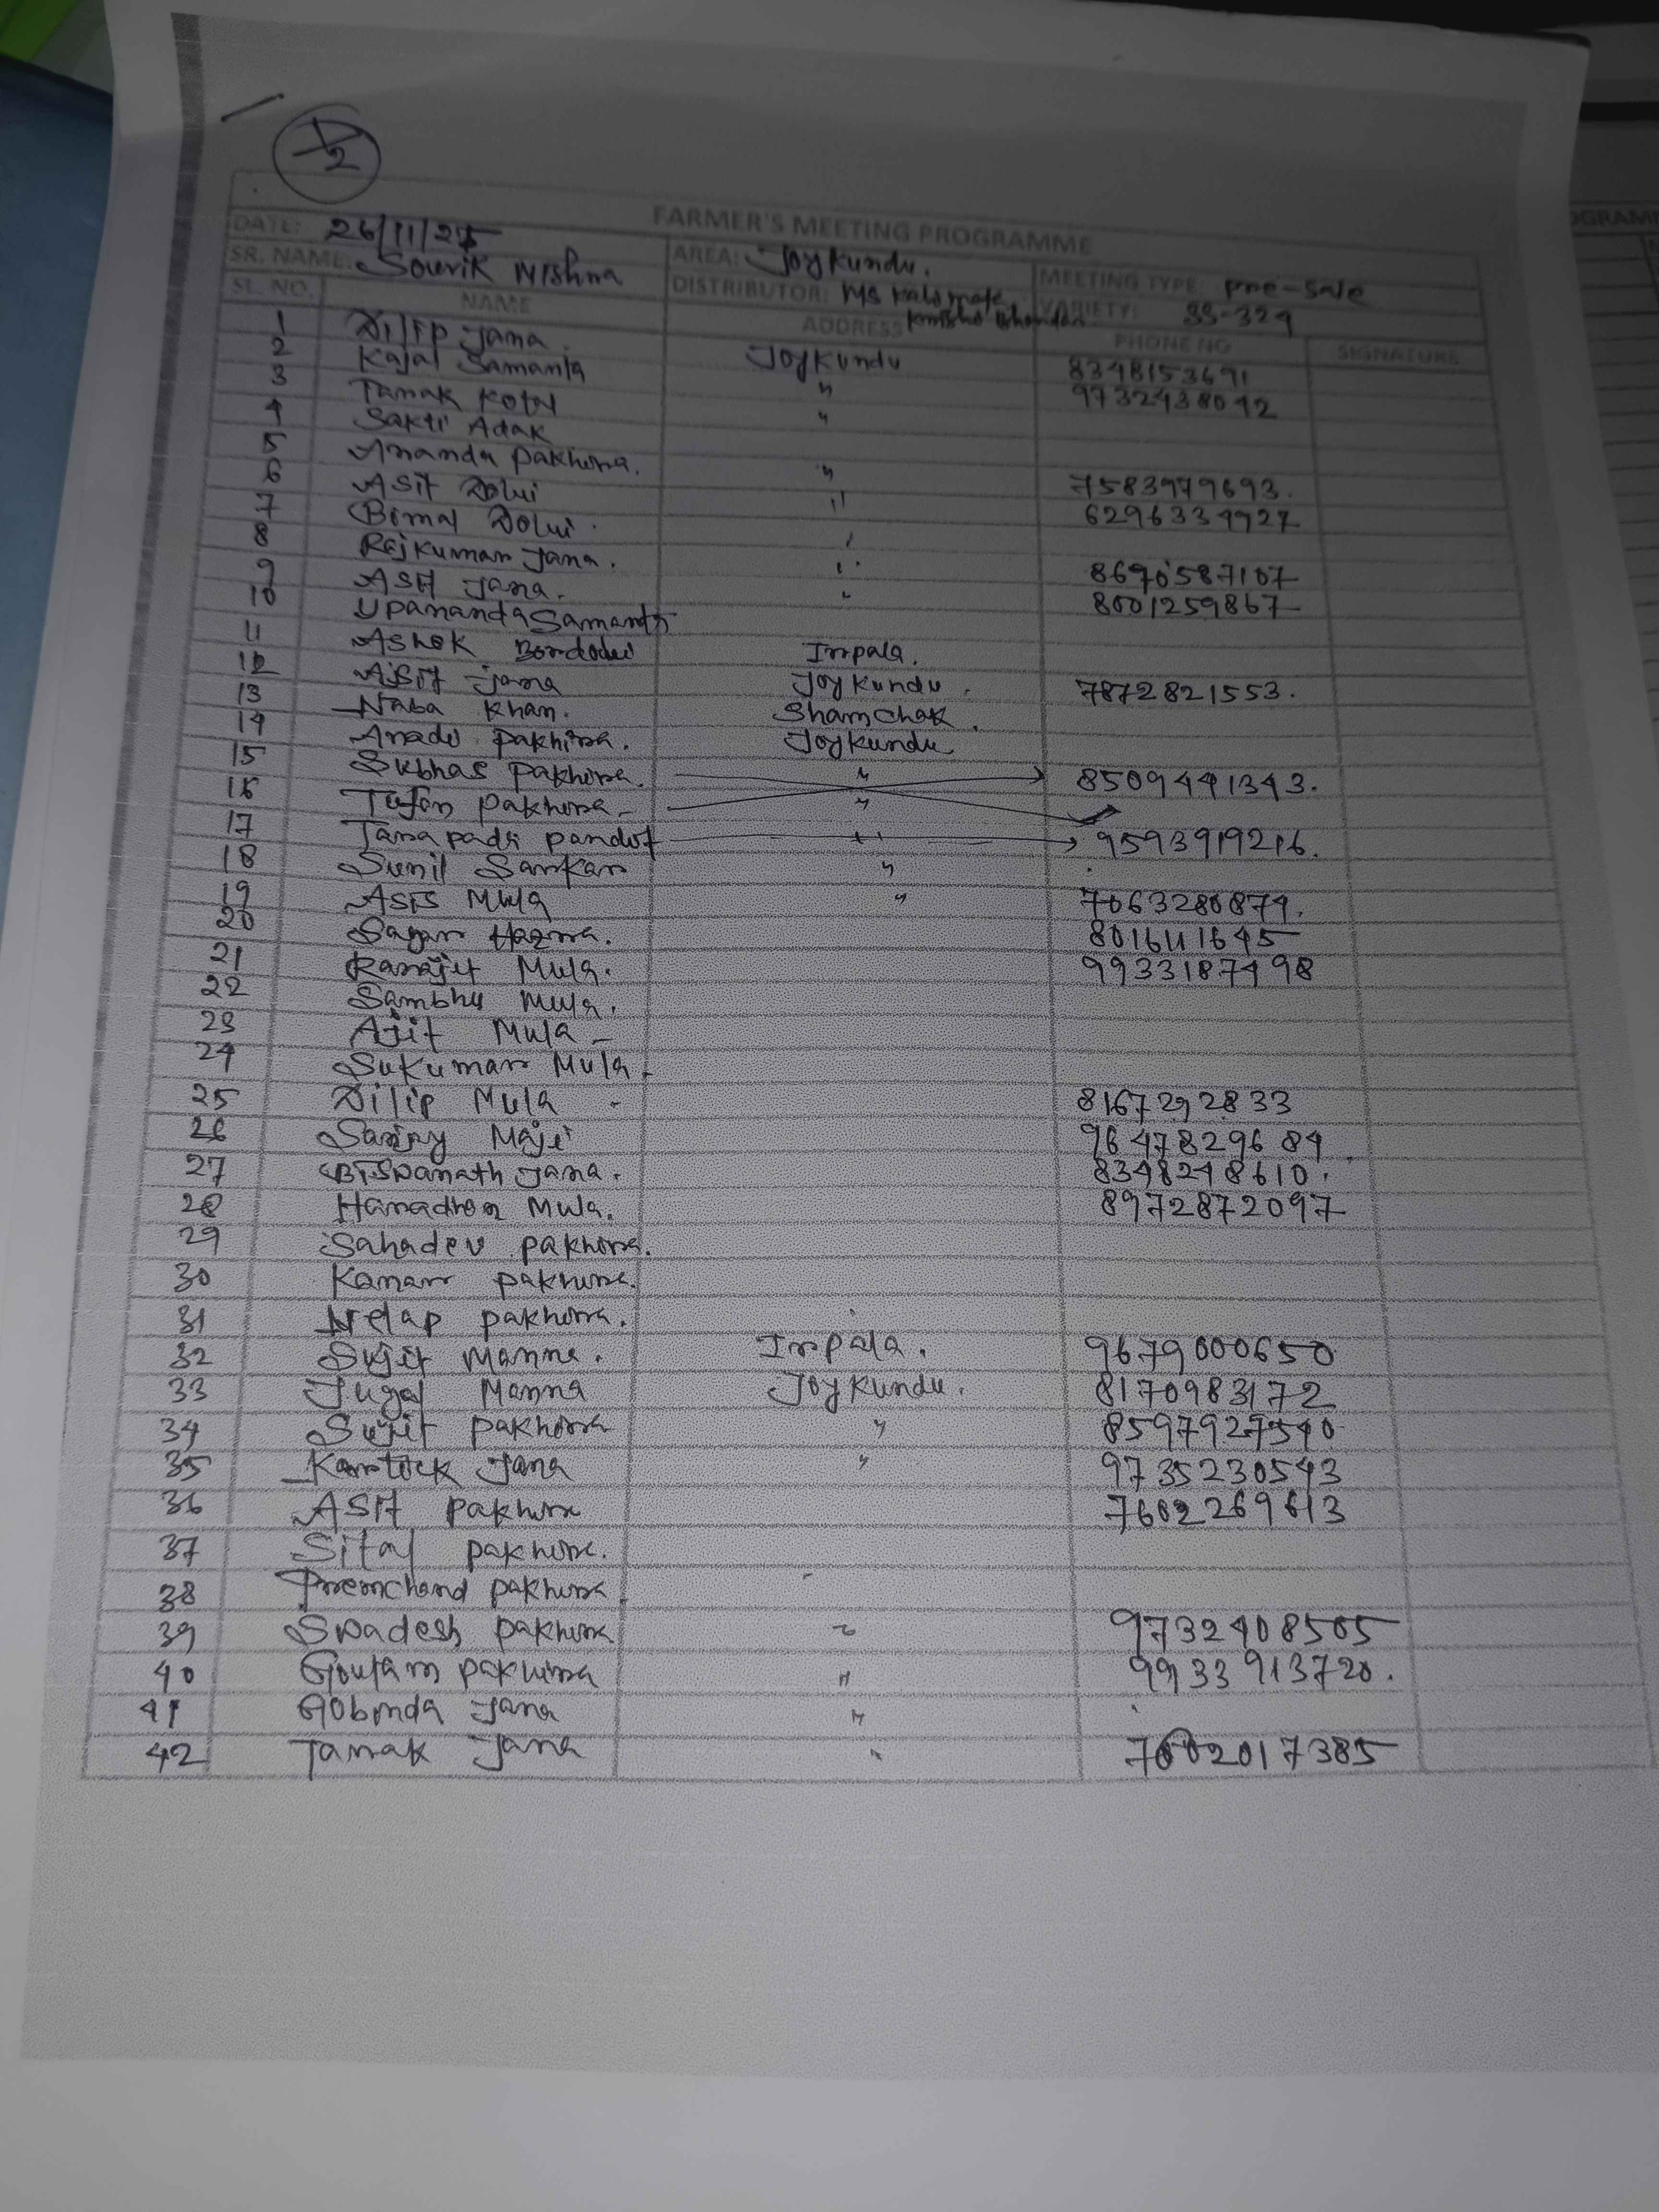 1/2
FARMER'S MEETING PROGRAMME
DATE: 26/11/25 AREA: Joykundu. MEETING TYPE: pre-sale
SR. NAME: Sourik Mishra DISTRIBUTOR: MS Krisho Bhandar VARIETY: SS-324
SL. NO. NAME ADDRESS PHONE NO SIGNATURE
1 Dilip Jana Joykundu 8348153691
2 Kajal Samanta " 9732438042
3 Tarak Kotal "
4 Sakti Adak
5 Ananda Pakhira. " 7583979693.
6 Asit Dolui " 6296334927
7 Bimal Dolui.
8 Rajkumar Jana. " 8690587107
9 Asit Jana. " 8001259867
10 Upananda Samanta
11 Ashok Irrpala.
12 Asit Jana Joykundu. 7872821553.
13 Naba Khan. Shamchak.
14 Anadi Pakhira. Joykundu
15 Subhas Pakhira. " 8509441343.
16 Tufan Pakhira "
17 Tarapada pandit " 9593919216.
18 Sunil Sarkar "
19 Asis Mula " 7063280874.
20 Sagar Hazra. 8016411645
21 Ranajit Mula. 9933187498
22 Sambhu Mula.
23 Ajit Mula
24 Sukumar Mula
25 Dilip Mula 8167292833
26 Sanjay Maji 9647829684
27 Biswanath Jana. 8348248610.
28 Haradhan Mula. 8972872097
29 Sahadev pakhira.
30 pakhira.
31 pakhira.
32 Sujit Manna. Irrpala. 9679000650
33 Jugal Manna Joykundu. 8170983172
34 Sujit pakhira " 8597927540
35 Kartick Jana " 9735230543
36 Asit pakhira 7602269613
37 Sital pakhira.
38 Premchand pakhira
39 Swadesh pakhira " 9732408505
40 Goutam pakhira " 9933913720.
41 Gobinda Jana "
42 Tarak Jana " 7602017385